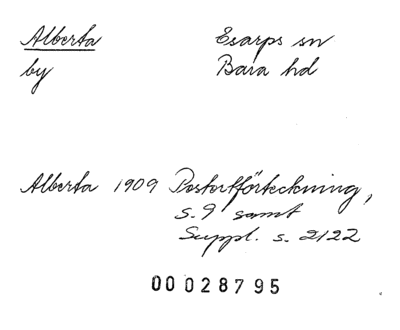 Alberta Esarps sn
by Bara hd
Alberta 1909 Postortförteckning,
s. 9 samt
Suppl. s. 2122
00 028795